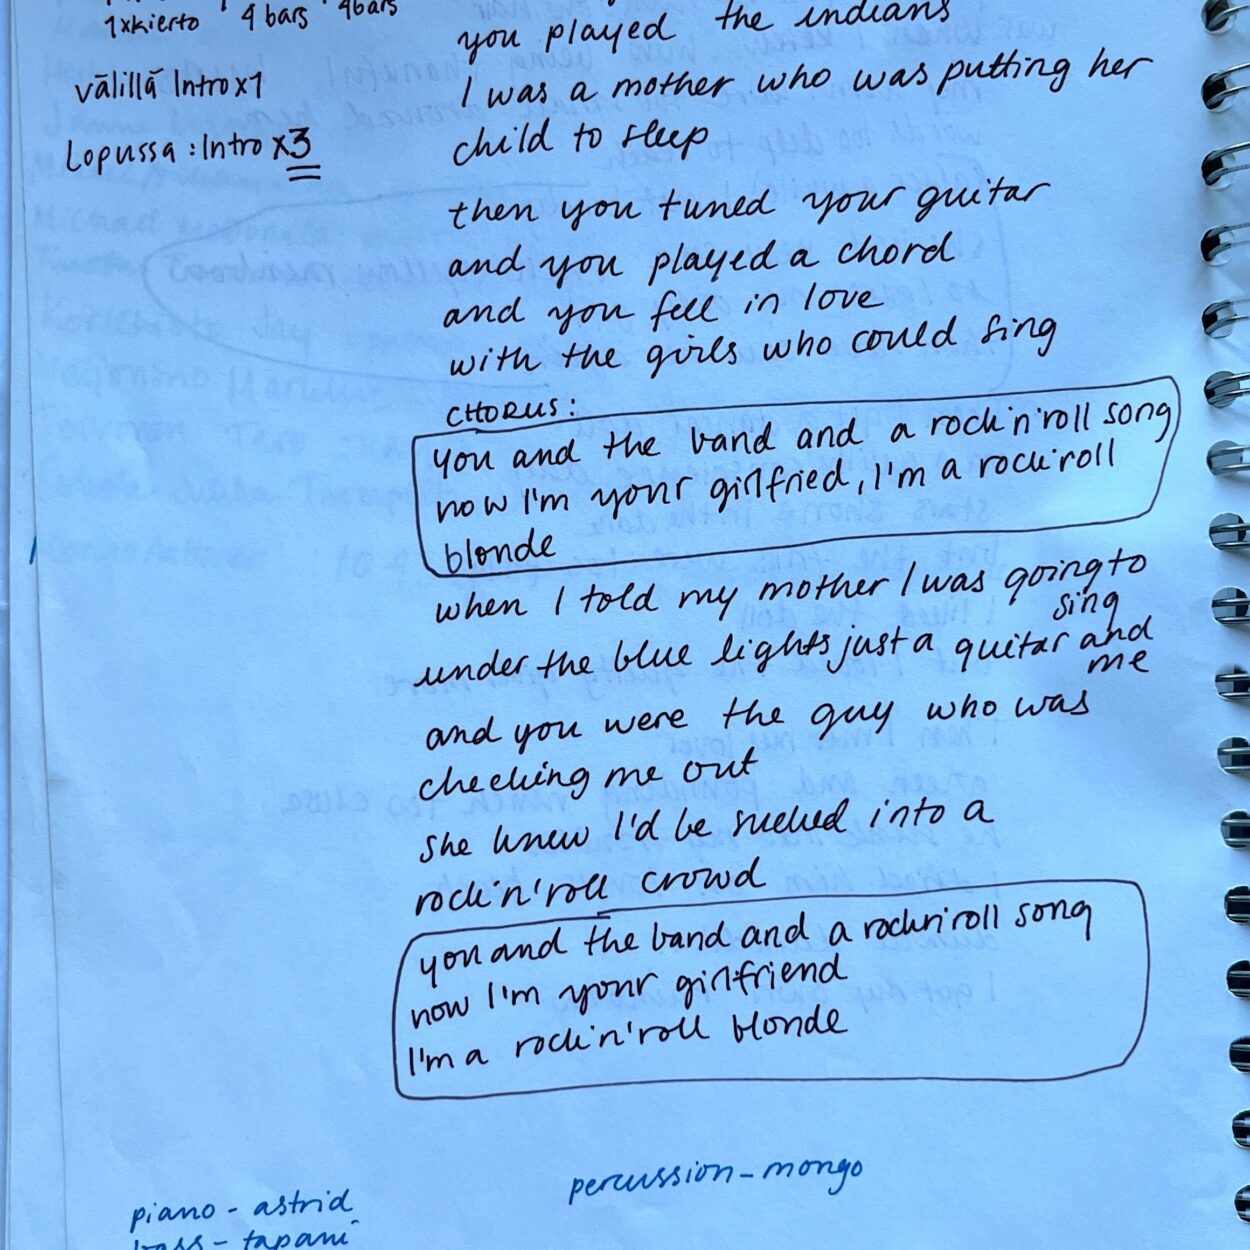 1xkierto 4 bars 4bars
välillä Intro x1
Lopussa : Intro x3
you played the indians
I was a mother who was putting her
child to sleep
then you tuned your guitar
and you played a chord
and you fell in love
with the girls who could sing
CHORUS:
you and the band and a rock'n'roll song
now I'm your girlfried, I'm a rock'roll
blonde
when I told my mother I was going to
sing
under the blue lights just a guitar and
me
and you were the guy who was
checking me out
she knew I'd be sucked into a
rock'n'roll crowd
you and the band and a rock'n'roll song
now I'm your girlfriend
I'm a rock'n'roll blonde
percussion - mongo
piano - astrid
bass - tapani